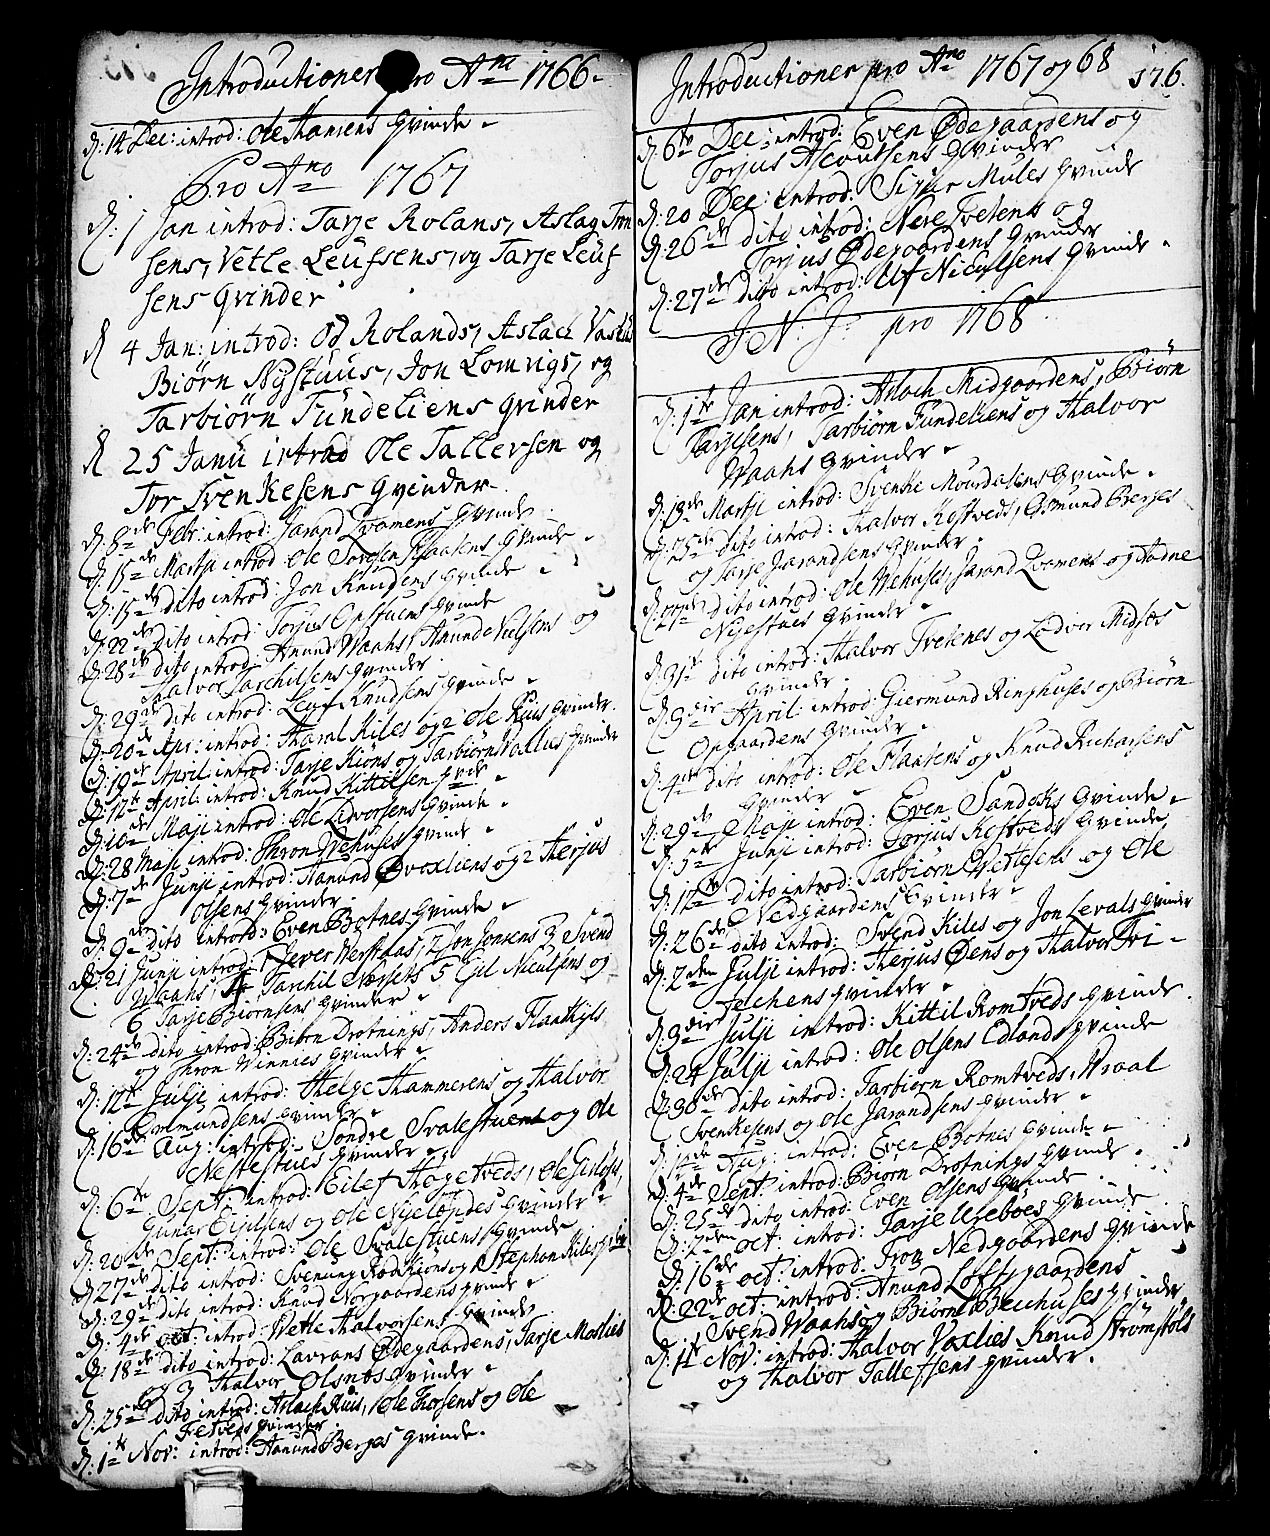 Introductioner pro Ano 1766.
d: 14 Dec: introd: Ole Hansens Qvinde.
Pro Ano 1767
d: 1 Jan introd: Tarje Rolans, Aslag
sens, Vetle Leufsens, og Tarje Leuf
sens Qvinder
d 4 Jan: introd: Od Rolands, Aslach
Biørn Nystuus, Jon Lomvigs, og
Tarbiørn Fundeliens qvinder
d 25 Janu introd Ole Tallefsen og
Tor Svenkesens Qvinder
d: 8de Febr: introd: Jarand Qvamens Qvinde.
d: 15de Martji introd Ole Flaatens Qvinde.
d: 15de dito introd: Jon Knudsens qvinde.
d: 22de dito introd: Torjus Opstuens Qvinde
d: 28de dito introd: Amund Waahs, Amunde Nielsens og
Halvor Tarchilsens Qvinder.
d: 29de dito introd: Leuf Knudsens qvinde.
d: 20de Apr: introd: Haral Kiles og 2 Ole Ruis Qvinder.
d: 19de April introd: Tarje Kiøns og Tarbiørn Vallies Qvinder
d: 17te April: introd: Knud Kittilsen qvde.
d: 10de Maji introd: Ole Lidvorsens Qvinde.
d: 28 Maji introd: Thron Wehuses Qvinde.
d: 7de Junji introd: Hanund Øvaxliens og 2 Therjus
Olsens Qvinder.
d: 9de dito introd: Even Botnes Qvinde.
d: 21 Junji introd: 1 Sever Werstaas, 2 Jon Jonsens 3 Svend
Waahs, 4 Tarchil Næsets 5 Ejel Niculsens og
6 Tarje Biørnsens Qvinder.
d: 24de dito introd: Biørn Drotnings, Anders Flaatkyls
og Thron Winnies Qvinder.
d: 12te Julji introd: Helge Hammerens og Halvor
Evelmundsens Qvinder.
d: 16de Aug: introd: Sondre Svalestuens og Ole
Nestestues Qvinder.
d: 6te Sept: introd: Eilef Hogetveds, Ole Gisløs,
Gunar Ejelsens og Ole Nyeløpdes Qvinder.
d: 20de Sept: introd: Ole Svalestuens Qvinde
d: 27de dito introd: Svenung Kions og Stephan Kiles qvin
d: 29de dito introd: Knud Norgaardens Qvinde.
d: 4de oct: introd: Vetle Halvorsens Qvinde.
d: 18de dito introd: Lavrans Ødegaardens, Tarje Moslies
og 3 Halvor Olsnøs Qvinder.
d: 25de dito introd: Aslach Ruis, Ole Thorsens og Ole
Fetveds qvinder.
d: 1te Nov: introd: Hanund Berges Qvinde.
Introductioner pro Ano 1767 og 68 176.
d: 6te Dec: introd: Even Ødegaardens og
Torjus Asloutsens Qvinder
d: 20 Dec: introd: Sigur Mules Qvinde
d: 26de dito introd: Neve Tvetens og
Torjus Ødegaardens Qvinder
d: 27de dito introd: Ulf Niculsens Qvinde.
J. N. J: pro 1768.
d: 1te Jan introd: Aslach Midgaardens, Biørn
Tarjesens, Tarbiørn Fundeliens og Halvor
Waahs Qvinder.
d: 13de Martji introd: Svenke Mourdalens Qvinde.
d: 25de dito introd: Halvor Kostveds, Osmund Berges
og Tarje Jarandsens Qvinder.
d: 27de dito introd: Ole Wehuses, Jarand Qvamens og Aadne
Nyestues Qvinder.
d: 31te dito introd: Halvor Tvetenes og Lodvor Midbøs
Qvinder.
d: 3die April: introd: Giermund Ringhuses og Biørn
Opgaardens Qvinder.
d: 4de dito introd: Ole Flaatens og Knud Richarsens
Qvinder.
d: 29de Maji introd: Even Sandoks Qvinde.
d: 5te Junji introd: Torjus Kostveds Qvinde
d: 12te dito introd: Tarbiørn Wettesens og Ole
Nedgaardens Qvinder.
d: 26de dito introd: Svend Kiles og Jon Levals Qvinder
d: 2den Julji introd: Therjus Øens og Halvor Tvi-
techens Qvinder.
d: 3die Julji introd: Kittil Romtveds Qvinde.
d: 24 Julji introd: Ole Olsens Edlands Qvinde
d: 30de dito introd: Tarbiørn Romtveds, Wraal
Svenkesens og Ole Jarandsens Qvinder.
d: 14de Aug: introd: Even Botnes Qvinde.
d: 4de Sept: introd: Biørn Drotnings Qvinde.
d: 25de dito introd: Even Olsens Qvinde
d: 2den oct: introd: Tarje Ureboes Qvinde
d: 16de oct: introd: Tron Nedgaardens Qvinde
d: 22de oct: introd: Anund Loftsgaardens
Svend Waahs og Biørn Berhuses Qvinder.
d: 1te Nov: introd: Halvor Vaxlies Knud Strømstøls
og Halvor Tallefsens qvinder.